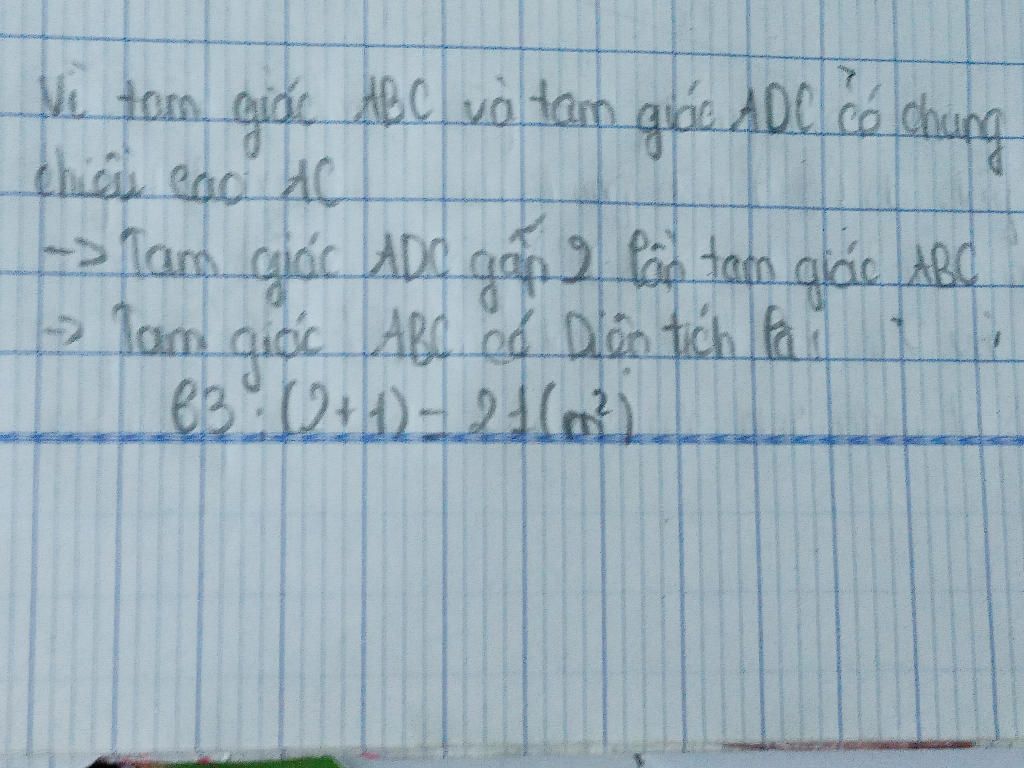 Vì tam giác ABC và tam giác ADC có chung
chiều cao AC
-> Tam giác ADC gấp 2 lần tam giác ABC
-> Tam giác ABC có Diện tích là:
63 : (2+1) = 21 (m²)